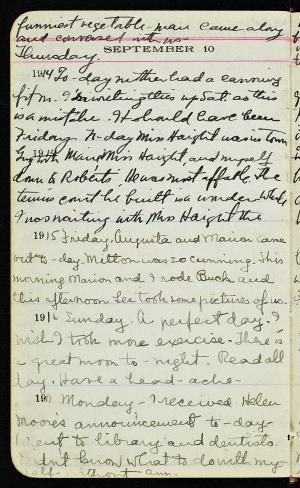 funniest vegetable-man came along
and conversed with us-
Thursday.
SEPTEMBER 10
1914 To-day mother had a canning
fit on. I am writing this up Sat. so this
is a mistake. It should have been
Friday. To-day Miss Haight was in town
and Miss Haight, and myself
down to Roberts. He was most affable. The
tennis court he built is a wonder. While
I was waiting with Miss Haight the
1915 Friday. Augusta and Marion came
out to-day. Milton was so cunning. This
morning Marion and I rode Buck and
this afternoon Lee took some pictures of us.
1916 Sunday. A perfect day. I
wish I took more exercise. There is
a great moon to-night. Read all
day. Have a head-ache-
191 Monday-I received Helen
Moore's announcement to-day
Went to library and dentists.
Didn't know what to do with my
self without